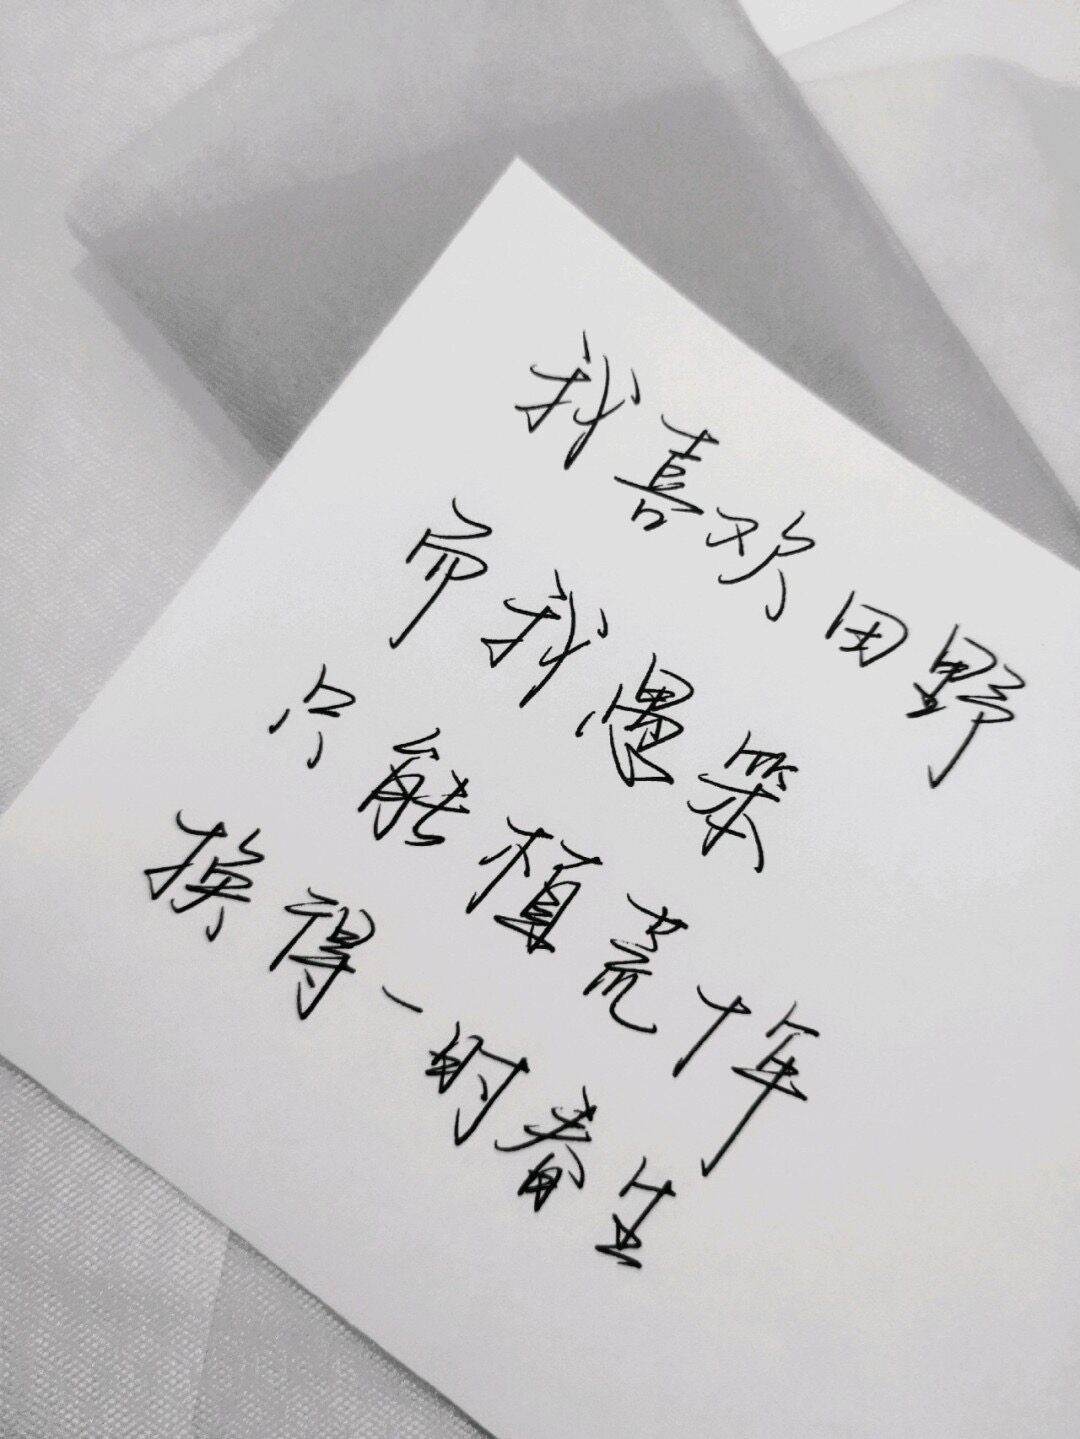 我喜欢田野
而我愚笨
只能植荒十年
换得一时春生